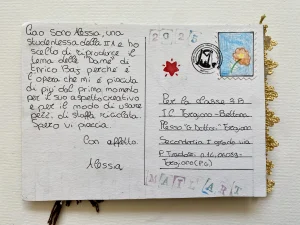 Ciao sono Alessia, una
studentessa della II A e ho
scelto di riprodurre il
tema delle "Dame" di
Enrico Baj perchè è
l'opera che mi è piaciuta
di più dal primo momento
per il suo aspetto creativo
e per il modo di usare
pezzi di stoffa riciclata
Spero vi piaccia
Con affetto
Alessia
2025
Per la classe 3 B
IC Torgiano-Bettona
Plesso "G. Dottori" Torgiano
Secondaria I grado via
Torgiano (PG)
MAIL ART